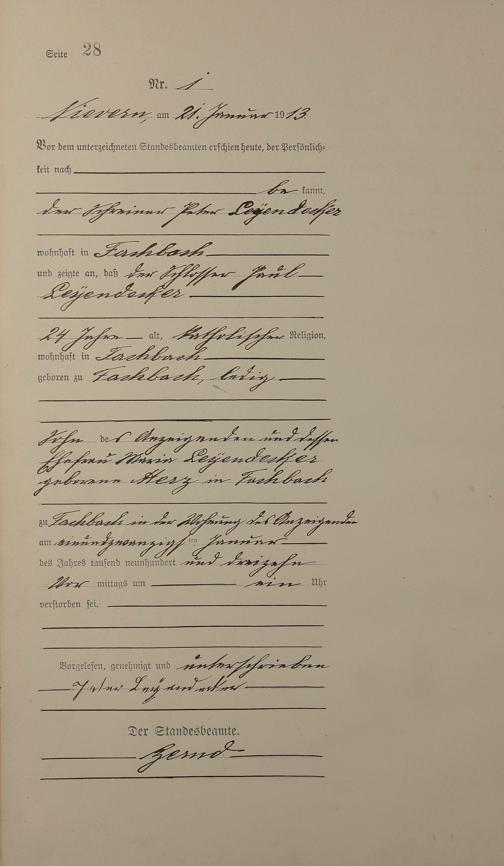 Seite 28
Nr. 1
Nievern, am 21. Januar 1913.
Vor dem unterzeichneten Standesbeamten erschien heute, der Persönlich-
keit nach
be kannt,
der Schreiner Peter Leÿendecker
wohnhaft in Fachbach
und zeigte an, daß der Schlosser Paul
Leÿendecker
24 Jahre alt, katholischer Religion,
wohnhaft in Fachbach
geboren zu Fachbach, ledig
Sohn des Anzeigenden und dessen
Ehefrau Maria Leÿendecker
geborene Herz in Fachbach
zu Fachbach in der Wohnung des Anzeigenden
am einundzwanzigsten Januar
des Jahres tausend neunhundert und dreizehn
Vor mittags um ein Uhr
verstorben sei.
Vorgelesen, genehmigt und unterschrieben
Peter Leyendecker
Der Standesbeamte.